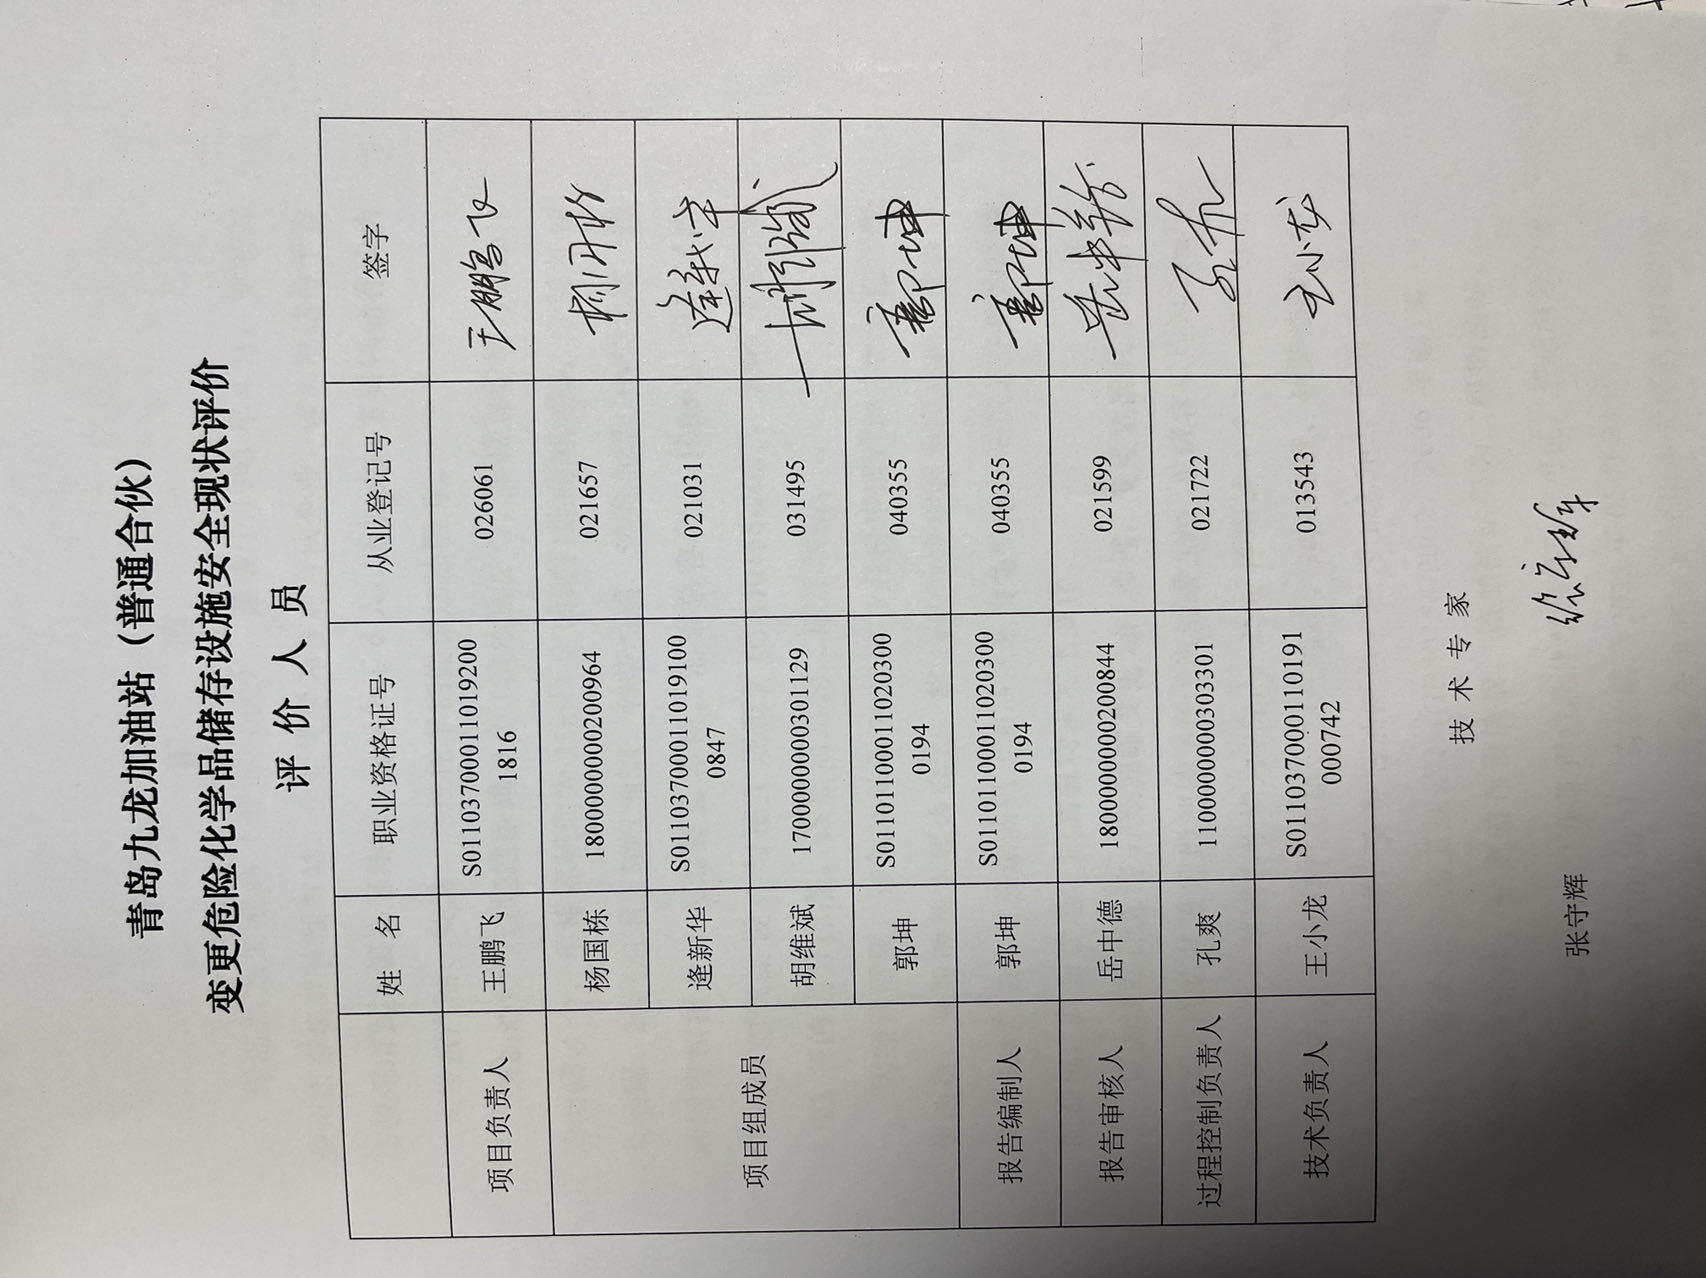 青岛九龙加油站（普通合伙）
变更危险化学品储存设施安全现状评价
评 价 人 员
姓 名 职业资格证号 从业登记号 签字
项目负责人 王鹏飞 S011037000110192001816 026061 王鹏飞
项目组成员 杨国栋 1800000000200964 021657
逄新华 S011037000110191000847 021031
胡维斌 1700000000301129 031495
郭坤 S011011000110203000194 040355 郭坤
报告编制人 郭坤 S011011000110203000194 040355 郭坤
报告审核人 岳中德 1800000000200844 021599
过程控制负责人 孔爽 1100000000303301 021722
技术负责人 王小龙 S011037000110191000742 013543 王小龙
技 术 专 家
张守辉